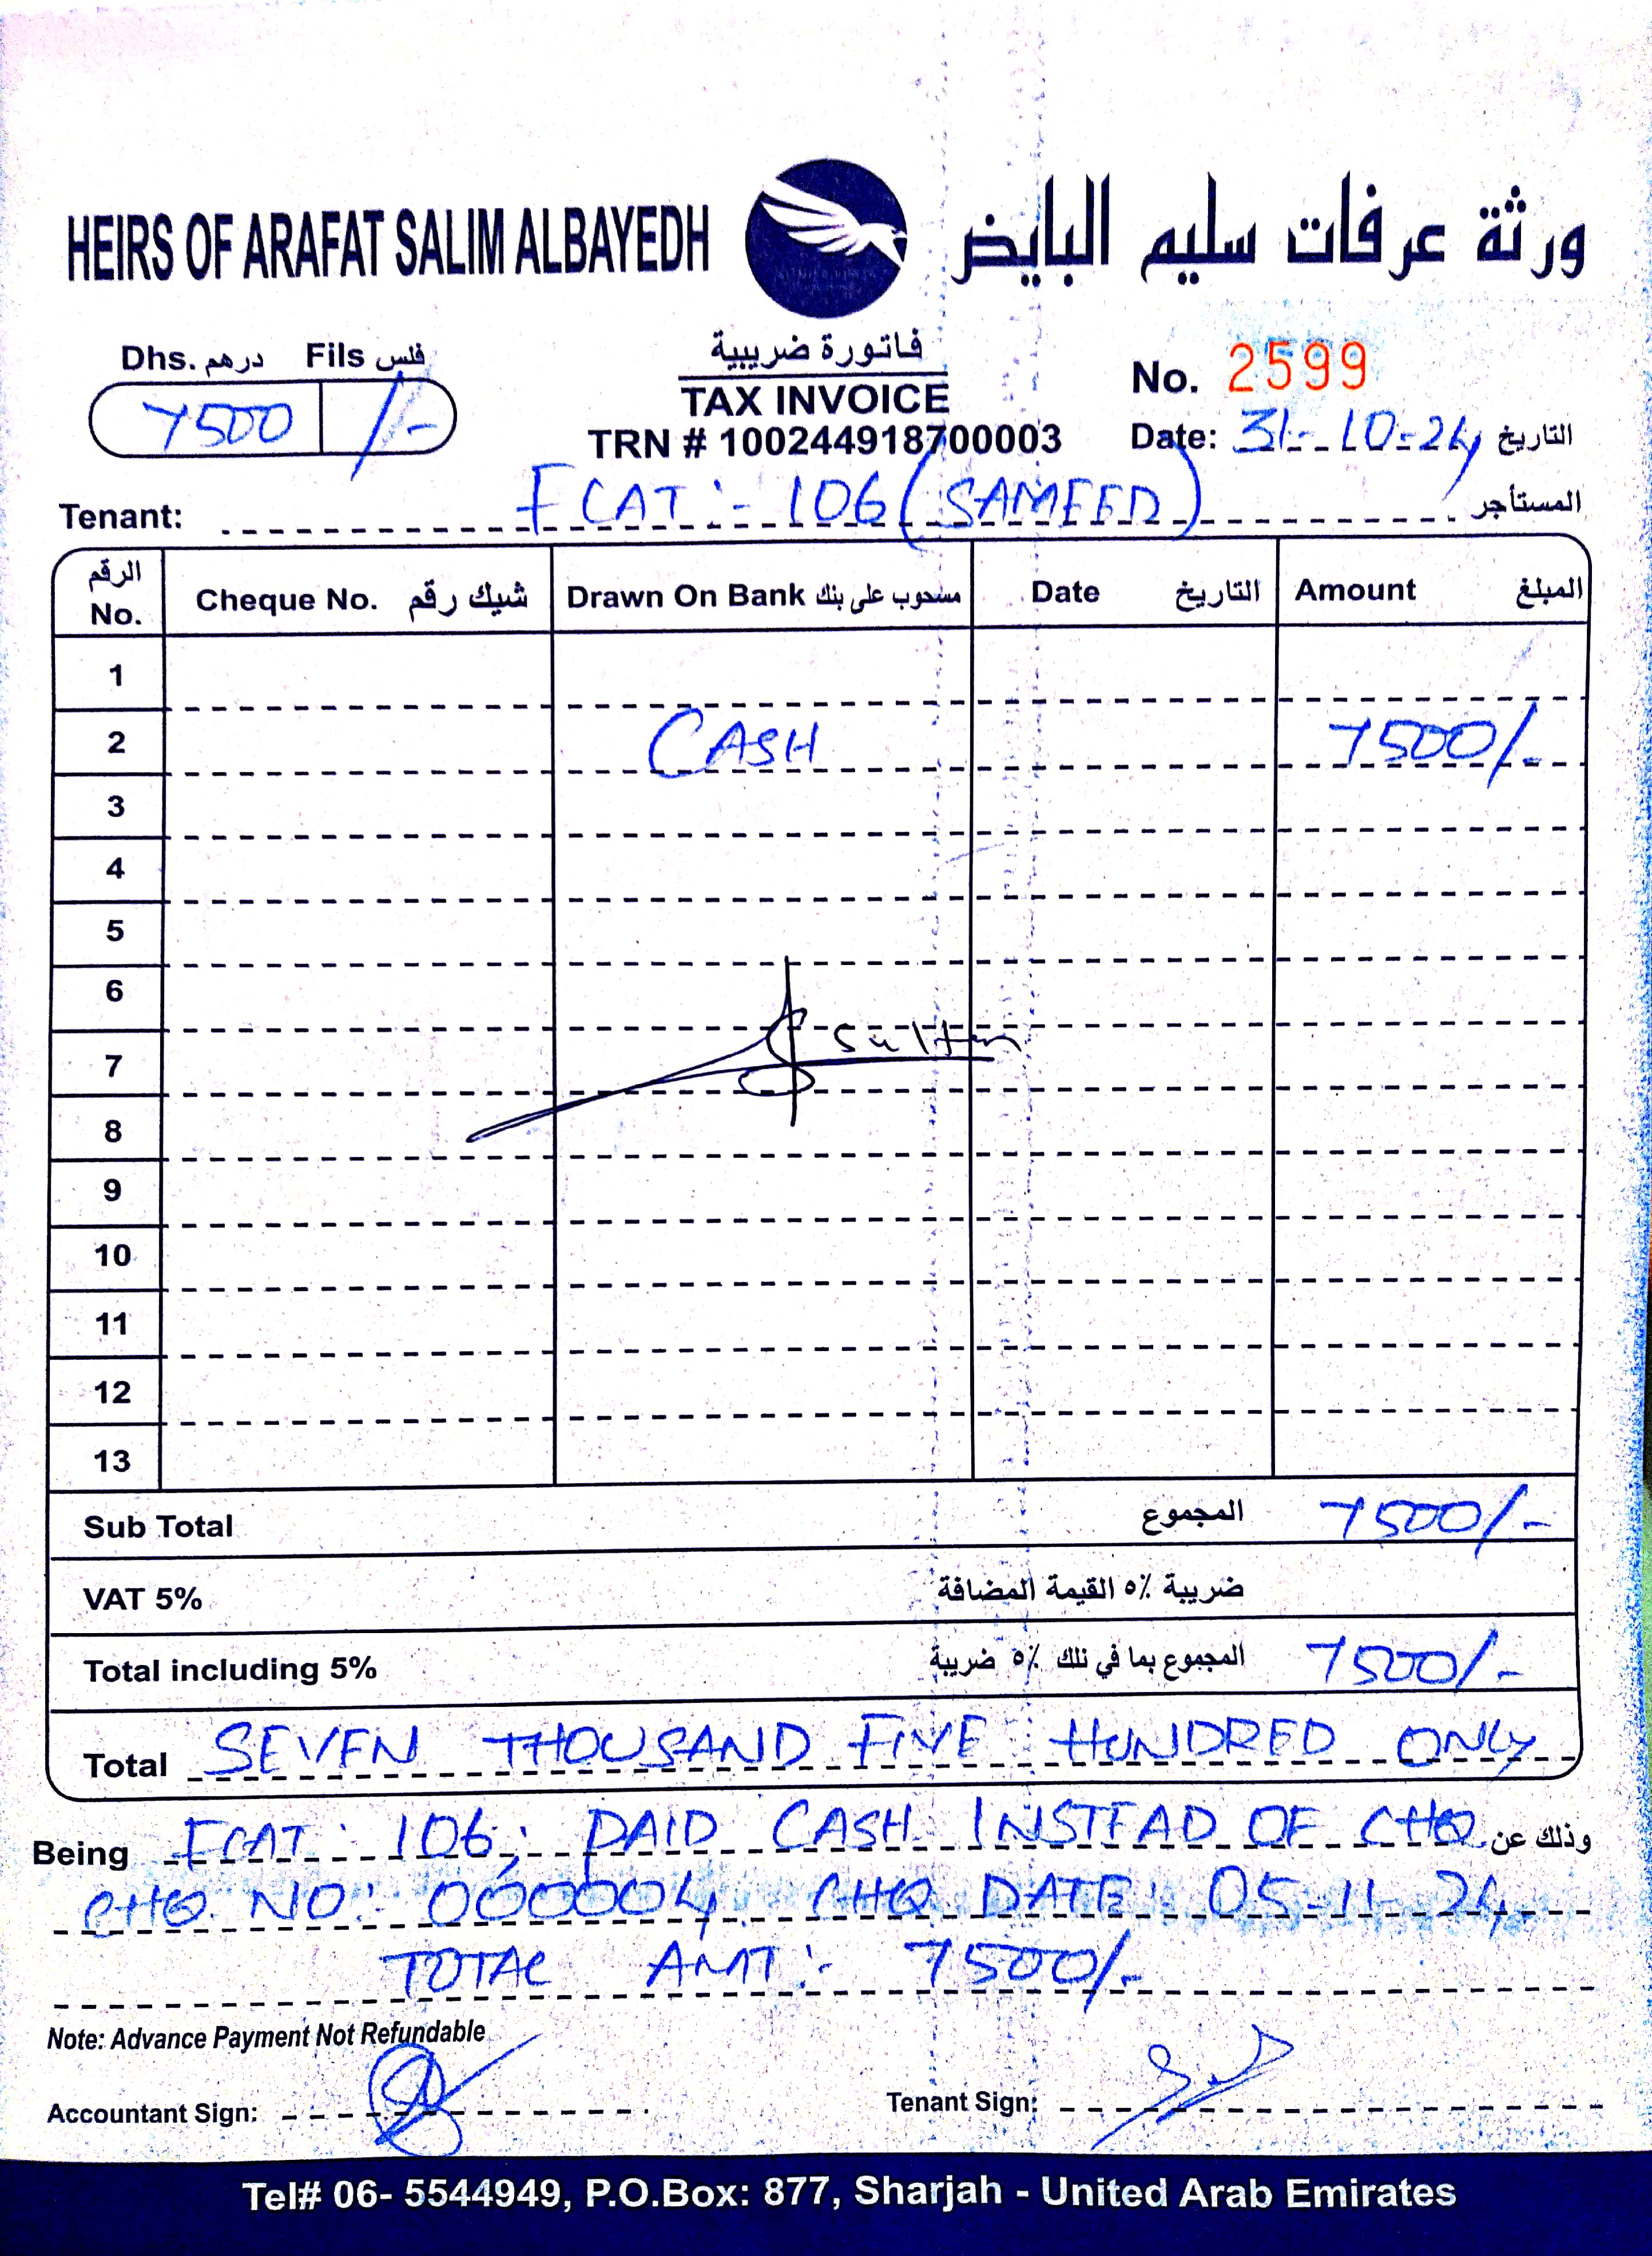 HEIRS OF ARAFAT SALIM ALBAYEDH ورثة عرفات سليم البايض
Dhs. درهم Fils فلس
7500 /-
فاتورة ضريبية
TAX INVOICE
TRN # 100244918700003
No. 2599
Date: 31-10-24 التاريخ
Tenant: FCAT:- 106 (SAMEED) المستأجر
الرقم No. Cheque No. شيك رقم Drawn On Bank مسحوب على بنك Date التاريخ Amount المبلغ
1
2 CASH 7500/-
3
4
5
6
7 Sultan
8
9
10
11
12
13
Sub Total المجموع 7500/-
VAT 5% ضريبة ٥٪ القيمة المضافة
Total including 5% المجموع بما في ذلك ٥٪ ضريبة 7500/-
Total SEVEN THOUSAND FIVE HUNDRED ONLY
Being FCAT: 106; PAID CASH INSTEAD OF CHQ وذلك عن
CHQ NO: 000004 CHQ DATE: 05-11-24
TOTAL AMT:- 7500/-
Note: Advance Payment Not Refundable
Accountant Sign: Tenant Sign:
Tel# 06- 5544949, P.O.Box: 877, Sharjah - United Arab Emirates